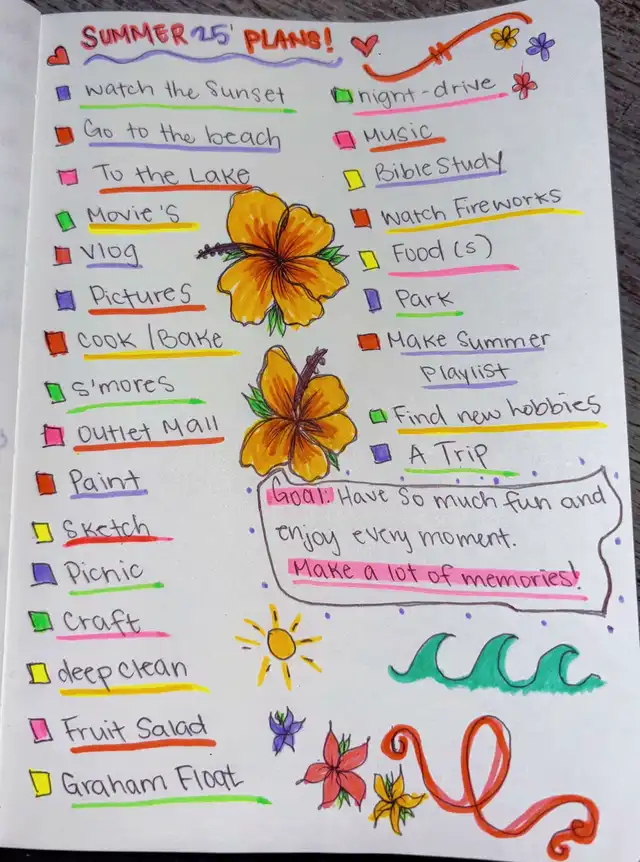 SUMMER 25' PLANS!
Watch the Sunset
Go to the beach
To the Lake
Movie's
Vlog
Pictures
Cook/Bake
S'mores
Outlet Mall
Paint
Sketch
Picnic
Craft
deep clean
Fruit Salad
Graham Float
night-drive
Music
Bible Study
Watch Fireworks
Food(s)
Park
Make Summer
Playlist
Find new hobbies
A Trip
Goal: Have so much fun and
enjoy every moment.
Make a lot of memories!